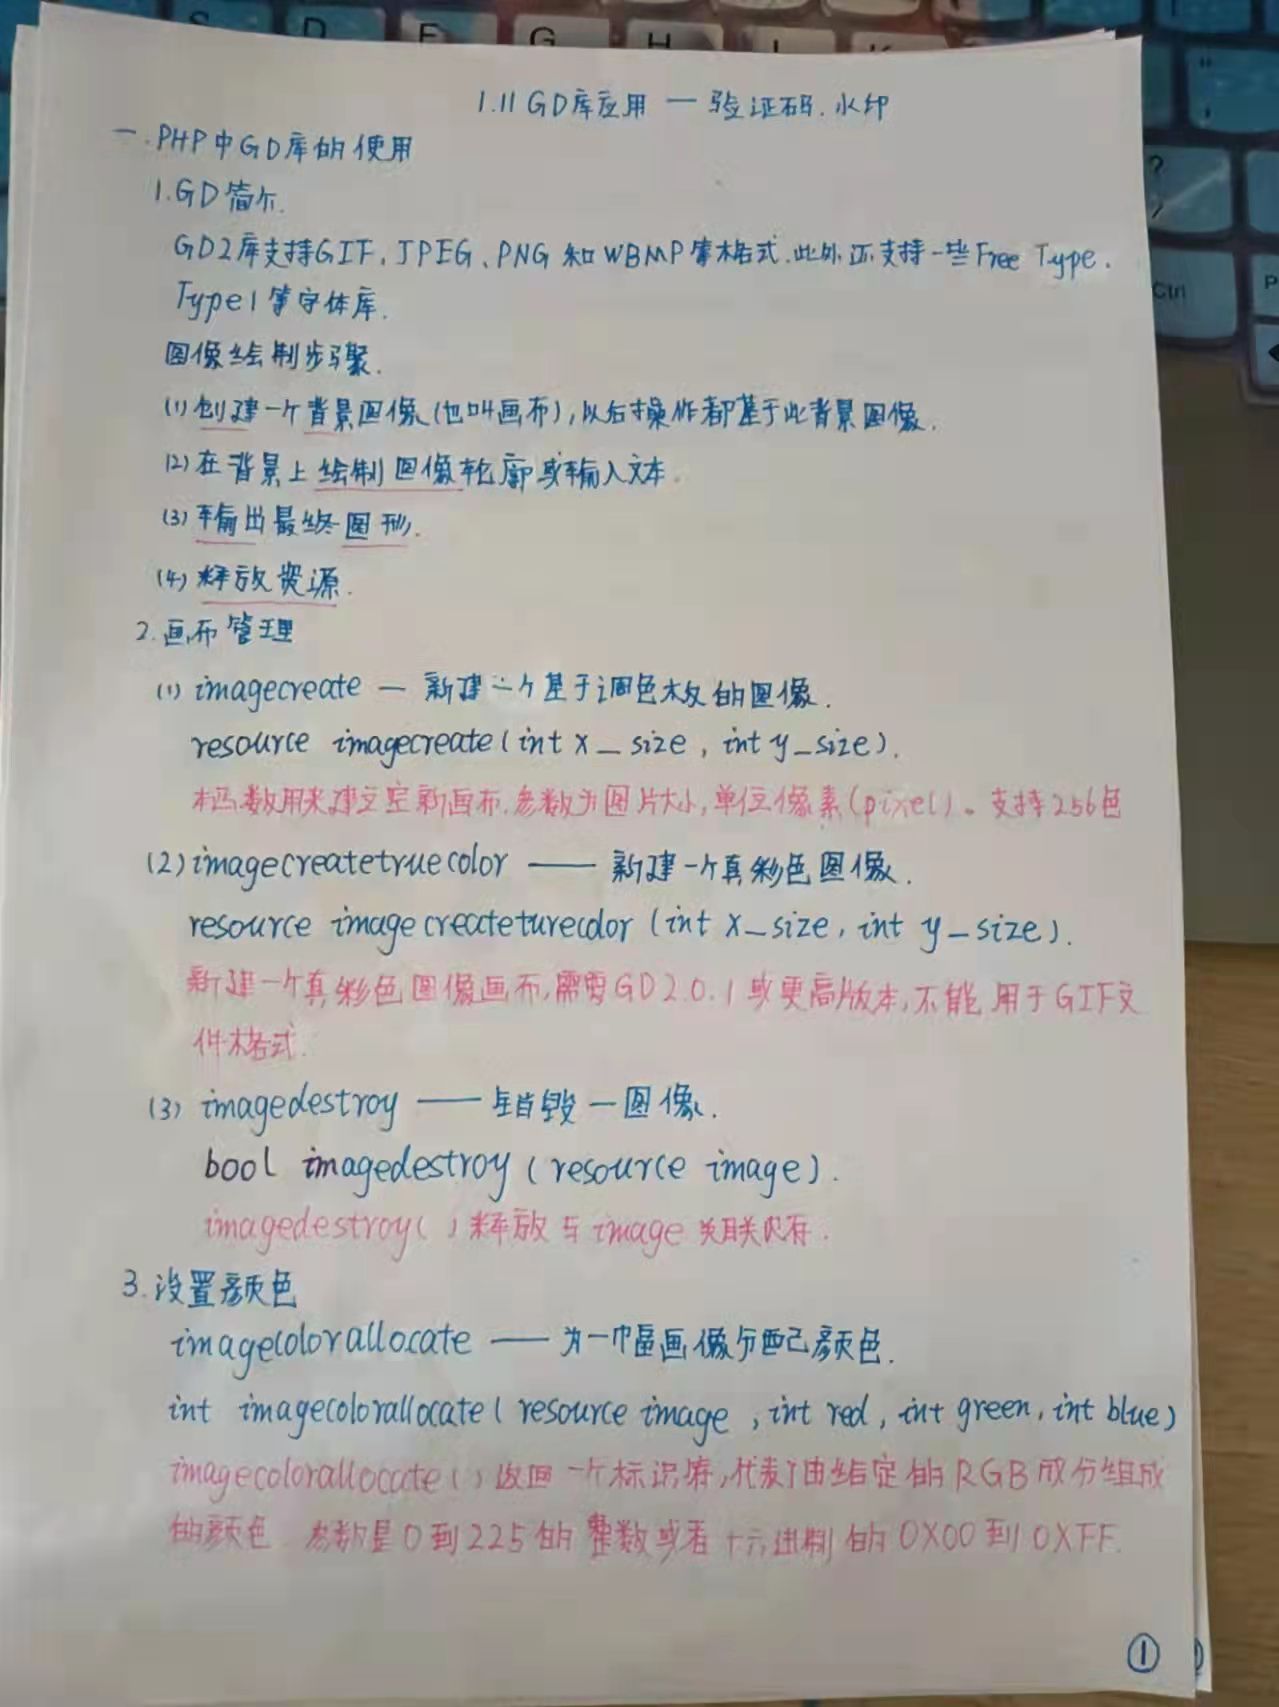 1.11 GD库应用 — 验证码.水印
一.PHP中GD库的使用
1.GD简介.
GD2库支持GIF、JPEG、PNG和WBMP等格式.此外还支持一些Free Type.
Type1等字体库.
图像绘制步骤.
(1)创建一个背景图像(也叫画布),以后操作都基于此背景图像.
(2)在背景上绘制图像轮廓或输入文本.
(3)输出最终图形.
(4)释放资源.
2.画布管理
(1) imagecreate — 新建一个基于调色板的图像.
resource imagecreate(int x_size, int y_size).
本函数用来建立空新画布.参数为图片大小,单位像素(pixel)。支持256色
(2) imagecreatetruecolor —— 新建一个真彩色图像.
resource imagecreateturecolor (int x_size, int y_size).
新建一个真彩色图像画布,需要GD2.0.1或更高版本,不能用于GIF文
件格式.
(3) imagedestroy —— 销毁一图像.
bool imagedestroy (resource image).
imagedestroy( )释放与image关联内存.
3.设置颜色
imagecolorallocate —— 为一幅画像分配颜色.
int imagecolorallocate( resource image , int red, int green, int blue)
imagecolorallocate( )返回一个标识符,代表了由给定的RGB成分组成
的颜色 参数是0到225的整数或者十六进制的0X00到0XFF.
①
Ctrl
D F G H J K